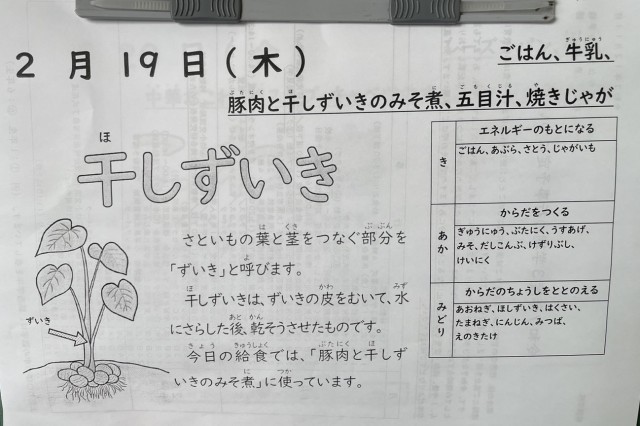 2月19日(木)
ごはん、牛乳、
豚肉と干しずいきのみそ煮、五目汁、焼きじゃが
干しずいき
さといもの葉と茎をつなぐ部分を
「ずいき」と呼びます。
干しずいきは、ずいきの皮をむいて、水
にさらした後、乾そうさせたものです。
今日の給食では、「豚肉と干しず
いきのみそ煮」に使っています。
ずいき
き
エネルギーのもとになる
ごはん、あぶら、さとう、じゃがいも
あか
からだをつくる
ぎゅうにゅう、ぶたにく、うすあげ、
みそ、だしこんぶ、けずりぶし、
けいにく
みどり
からだのちょうしをととのえる
あおねぎ、ほしずいき、はくさい、
たまねぎ、にんじん、みつば、
えのきたけ